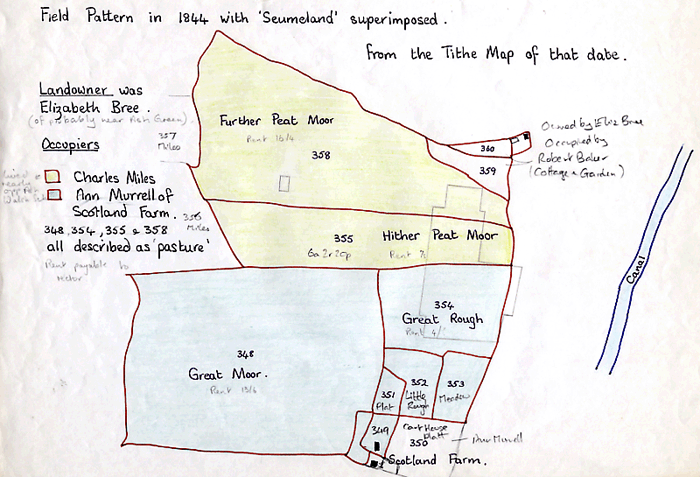 Field Pattern in 1844 with 'Seumeland' superimposed.
From the Tithe Map of that date.
Landowner was
Elizabeth Bree.
(of probably near Ash Green).
357
Miles
Occupiers
Charles Miles
Ann Murrell of
Scotland Farm.
356
Miles
348, 354, 355 & 358
all described as 'pasture'
Rent payable to
Rector
Further Peat Moor
Rent 16/4
358
360
359
Owned by Eliz Bree
Occupied by
Robert Baker
(Cottage & Garden)
355
Hither Peat Moor
6a 2r 20p
Rent 7/
354
Great Rough
Rent 4/
348
Great Moor.
Rent 13/6
351
Plat
352
Little
Rough
353
Meadow
349
Cart House
Platt
350
Ann Murrell
Scotland Farm.
Canal